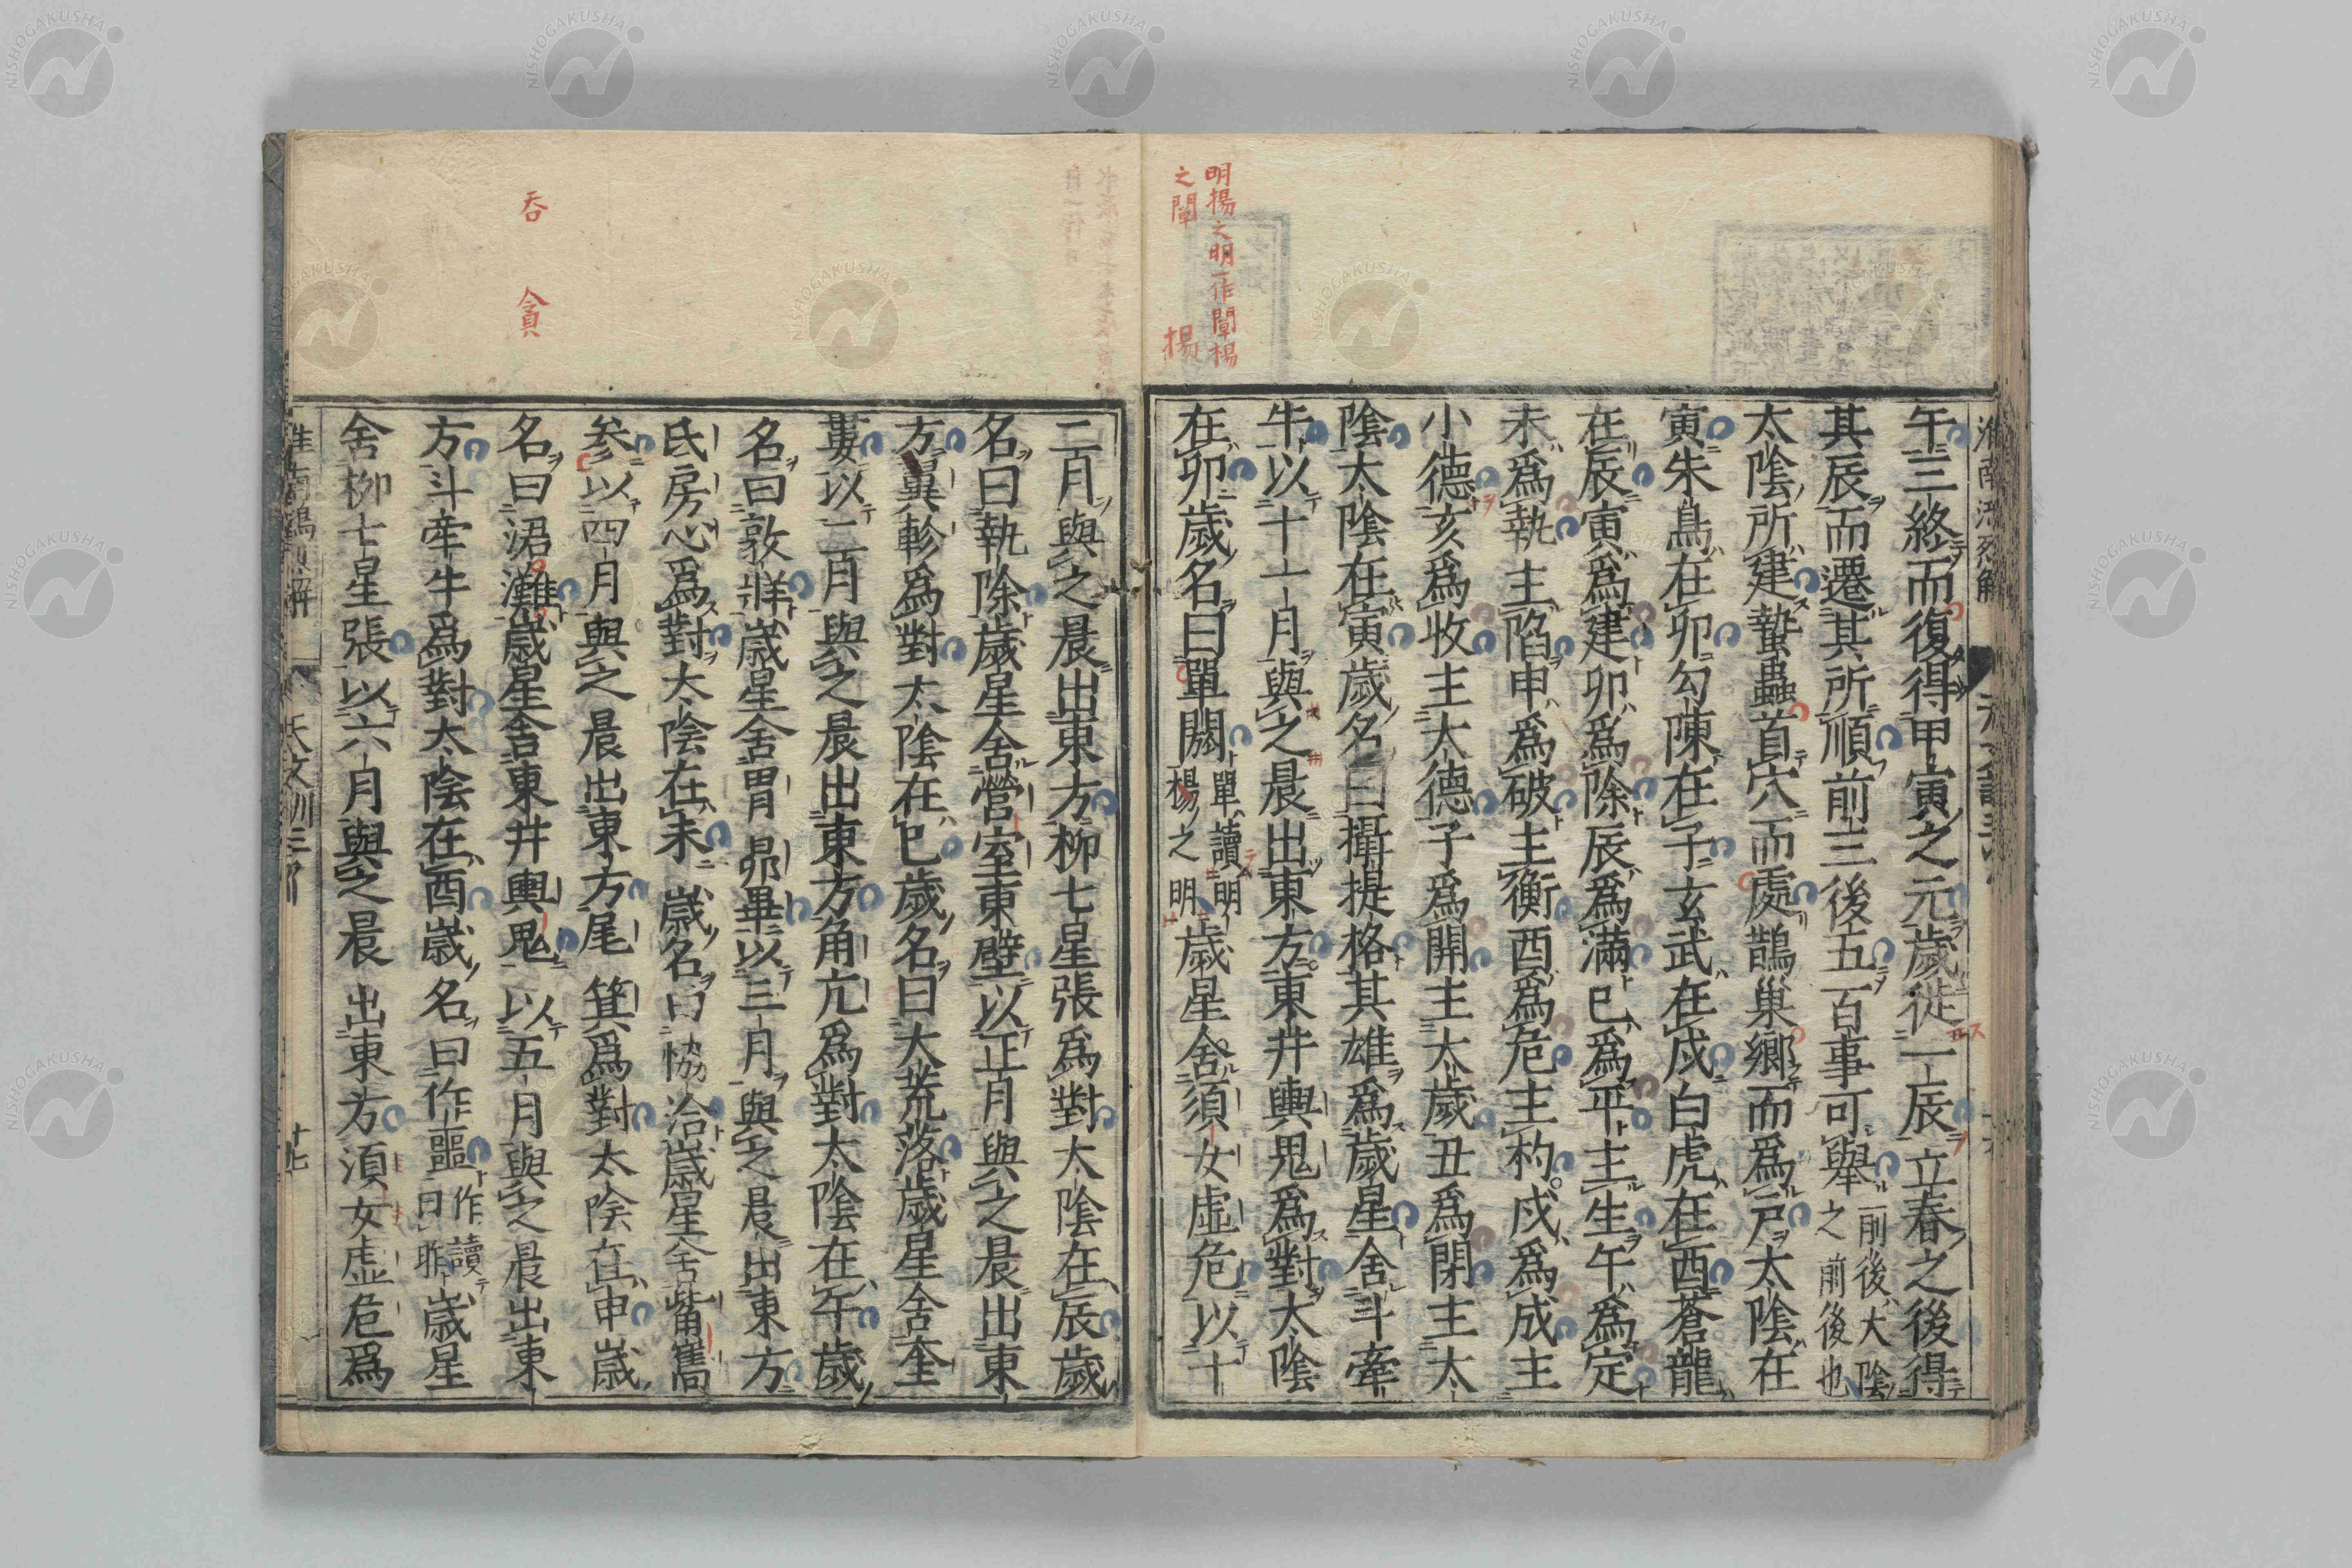 明揚之明一作闡楊
之闡 揚
午三終而復得甲寅之元歲徙一辰立春之後得
其辰而遷其所順前三後五百事可舉之前後大陰前後也
太陰所建蟄蟲首穴而處鵲巢鄉而為戸太陰在
寅朱鳥在卯勾陳在子玄武在戌白虎在酉蒼龍
在辰寅為建卯為除辰為滿巳為平主生午為定
未為執主陷申為破主衡酉為危主杓戌為成主
小德亥為收主大德子為開主太歲丑為閉主太
陰太陰在寅歲名曰攝提格其雄為歲星舍斗牽
牛以十一月與之晨出東方東井輿鬼為對太陰
在卯歲名曰單閼單讀明楊之明歲星舍須女虛危以十
呑 貪
二月與之晨出東方柳七星張為對太陰在辰歲
名曰執除歲星舍營室東壁以正月與之晨出東
方翼軫為對太陰在巳歲名曰大荒落歲星舍奎
婁以二月與之晨出東方角亢為對太陰在午歲
名曰敦牂歲星舍胃昴畢以三月與之晨出東方
氐房心為對太陰在未歲名曰協洽歲星舍觜嶲
参以四月與之晨出東方尾箕為對太陰在申歲
名曰涒灘歲星舍東井輿鬼以五月與之晨出東
方斗牽牛為對太陰在酉歲名曰作噩作讀曰昨歲星
舍柳七星張以六月與之晨出東方須女虛危為
天文訓三 十七
NISHOGAKUSHA